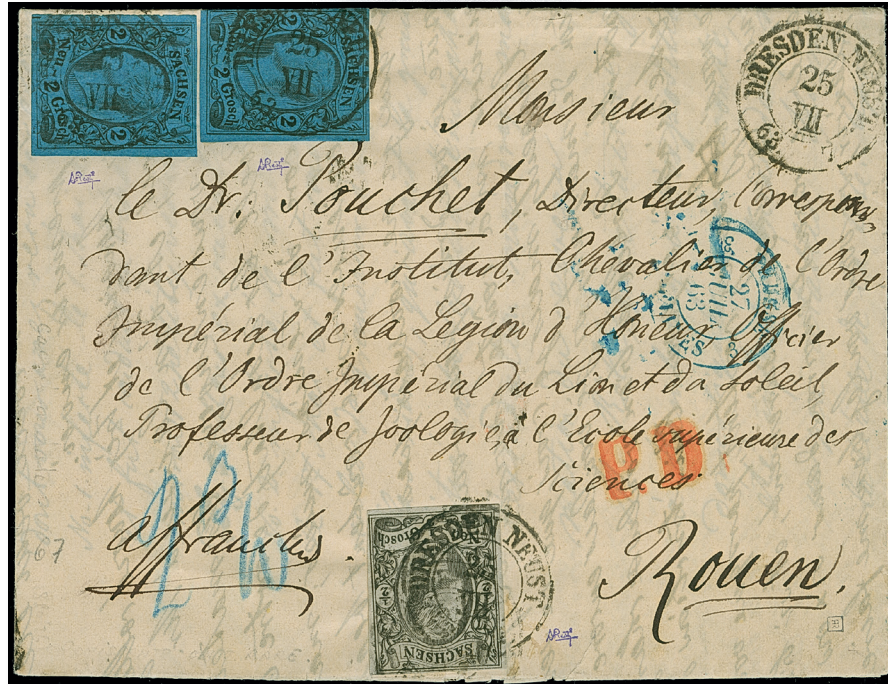 2
SACHSEN
VII
Neu-2 Grosch
2
DRESDEN NEUST.
25
VII
63
2
SACHSEN
Neu-2 Grosch
2
DRESDEN NEUST.
25
VII
63
Monsieur
le Dr. Pouchet, Directeur, Correspon-
dant de l'Institut, Chevalier de l'Ordre
Impérial de la Legion d'Honeur, Officier
de l'Ordre Impérial du Lion et du Soleil,
Professeur de Zoologie, à l'Ecole supérieure des
Sciences
27
63
P.D
affranchi.
Rouen.
DRESDEN NEUST.
Grosch
SACHSEN